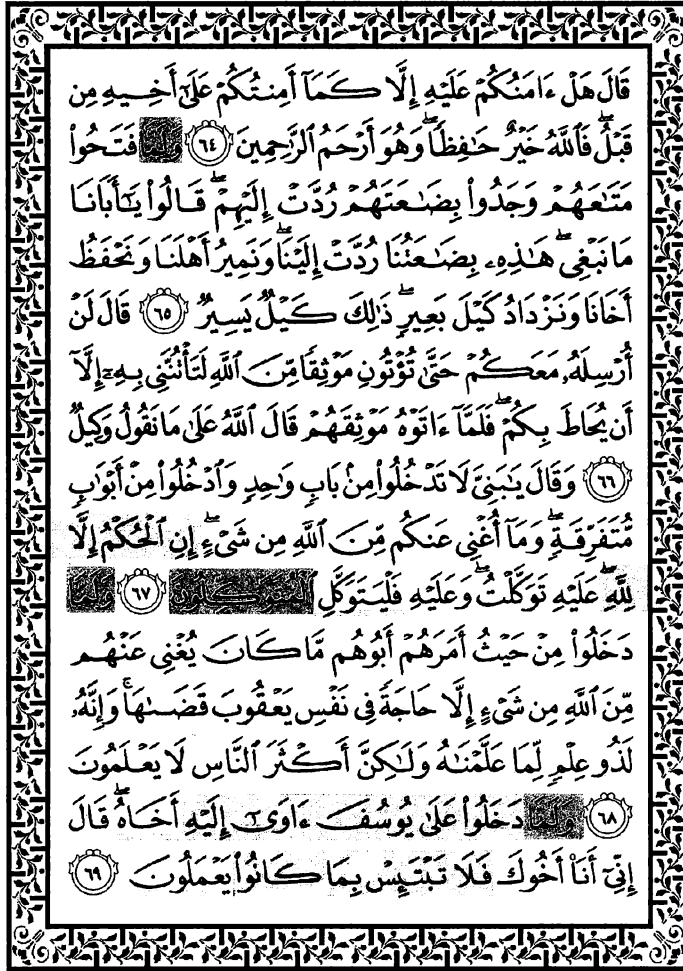 قَالَ هَلْ ءَامَنُكُمْ عَلَيْهِ إِلَّا كَمَآ أَمِنتُكُمْ عَلَىٰٓ أَخِيهِ مِن
قَبْلُ ۖ فَٱللَّهُ خَيْرٌ حَـٰفِظًا ۖ وَهُوَ أَرْحَمُ ٱلرَّٰحِمِينَ ﴿٦٤﴾ وَلَمَّا فَتَحُوا۟
مَتَـٰعَهُمْ وَجَدُوا۟ بِضَـٰعَتَهُمْ رُدَّتْ إِلَيْهِمْ ۖ قَالُوا۟ يَـٰٓأَبَانَا
مَا نَبْغِى ۖ هَـٰذِهِۦ بِضَـٰعَتُنَا رُدَّتْ إِلَيْنَا ۖ وَنَمِيرُ أَهْلَنَا وَنَحْفَظُ
أَخَانَا وَنَزْدَادُ كَيْلَ بَعِيرٍ ۖ ذَٰلِكَ كَيْلٌ يَسِيرٌ ﴿٦٥﴾ قَالَ لَنْ
أُرْسِلَهُۥ مَعَكُمْ حَتَّىٰ تُؤْتُونِ مَوْثِقًا مِّنَ ٱللَّهِ لَتَأْتُنَّنِى بِهِۦٓ إِلَّآ
أَن يُحَاطَ بِكُمْ ۖ فَلَمَّآ ءَاتَوْهُ مَوْثِقَهُمْ قَالَ ٱللَّهُ عَلَىٰ مَا نَقُولُ وَكِيلٌ
﴿٦٦﴾ وَقَالَ يَـٰبَنِىَّ لَا تَدْخُلُوا۟ مِنۢ بَابٍ وَٰحِدٍ وَٱدْخُلُوا۟ مِنْ أَبْوَٰبٍ
مُّتَفَرِّقَةٍ ۖ وَمَآ أُغْنِى عَنكُم مِّنَ ٱللَّهِ مِن شَىْءٍ ۖ إِنِ ٱلْحُكْمُ إِلَّا
لِلَّهِ ۖ عَلَيْهِ تَوَكَّلْتُ ۖ وَعَلَيْهِ فَلْيَتَوَكَّلِ ٱلْمُتَوَكِّلُونَ ﴿٦٧﴾ وَلَمَّا
دَخَلُوا۟ مِنْ حَيْثُ أَمَرَهُمْ أَبُوهُم مَّا كَانَ يُغْنِى عَنْهُم
مِّنَ ٱللَّهِ مِن شَىْءٍ إِلَّا حَاجَةً فِى نَفْسِ يَعْقُوبَ قَضَىٰهَا ۚ وَإِنَّهُۥ
لَذُو عِلْمٍ لِّمَا عَلَّمْنَـٰهُ وَلَـٰكِنَّ أَكْثَرَ ٱلنَّاسِ لَا يَعْلَمُونَ
﴿٦٨﴾ وَلَمَّا دَخَلُوا۟ عَلَىٰ يُوسُفَ ءَاوَىٰٓ إِلَيْهِ أَخَاهُ ۖ قَالَ
إِنِّىٓ أَنَا۠ أَخُوكَ فَلَا تَبْتَئِسْ بِمَا كَانُوا۟ يَعْمَلُونَ ﴿٦٩﴾